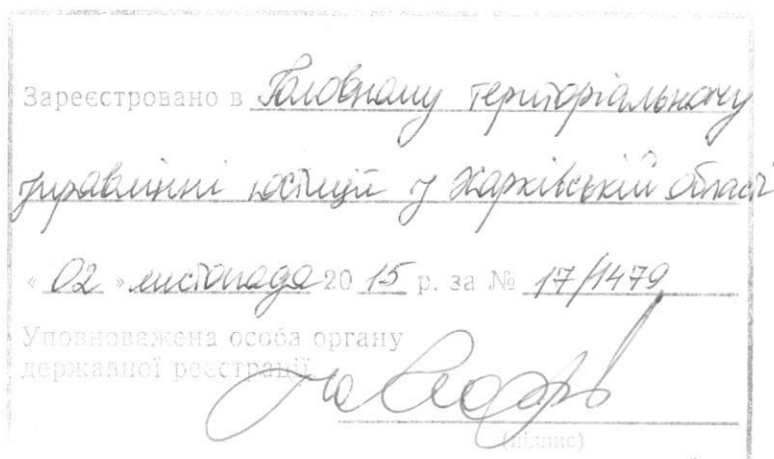 Зареєстровано в Головному територіальному
управлінні юстиції у Харківській області
« 02 » листопада 20 15 р. за № 17/1479
Уповноважена особа органу
державної реєстрації
(підпис)